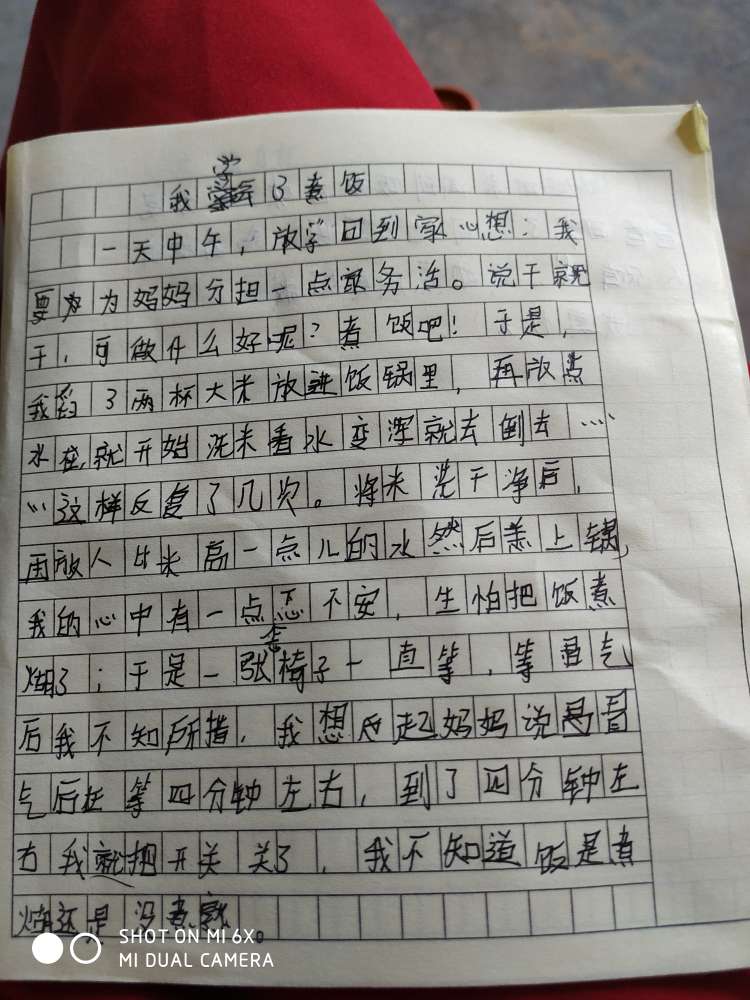 学
我学会了煮饭
一天中午，放学回到家心想：我
要为妈妈分担一点家务活。说干就
干，可做什么好呢？煮饭吧！于是，
我舀了两杯大米放进饭锅里，再放点
水在，就开始洗米看水变浑就去倒去…
…这样反复了几次。将米洗干净后，
再放人比米高一点儿的水然后盖上锅，
我的心中有一点忐不安，生怕把饭煮
糊了；于是一张椅子一直等，等冒气
后我不知所措，我想起妈妈说是冒
气后在等四分钟左右，到了四分钟左
右我就把开关关了，我不知道饭是煮
糊还是没煮熟。
SHOT ON MI 6X
MI DUAL CAMERA